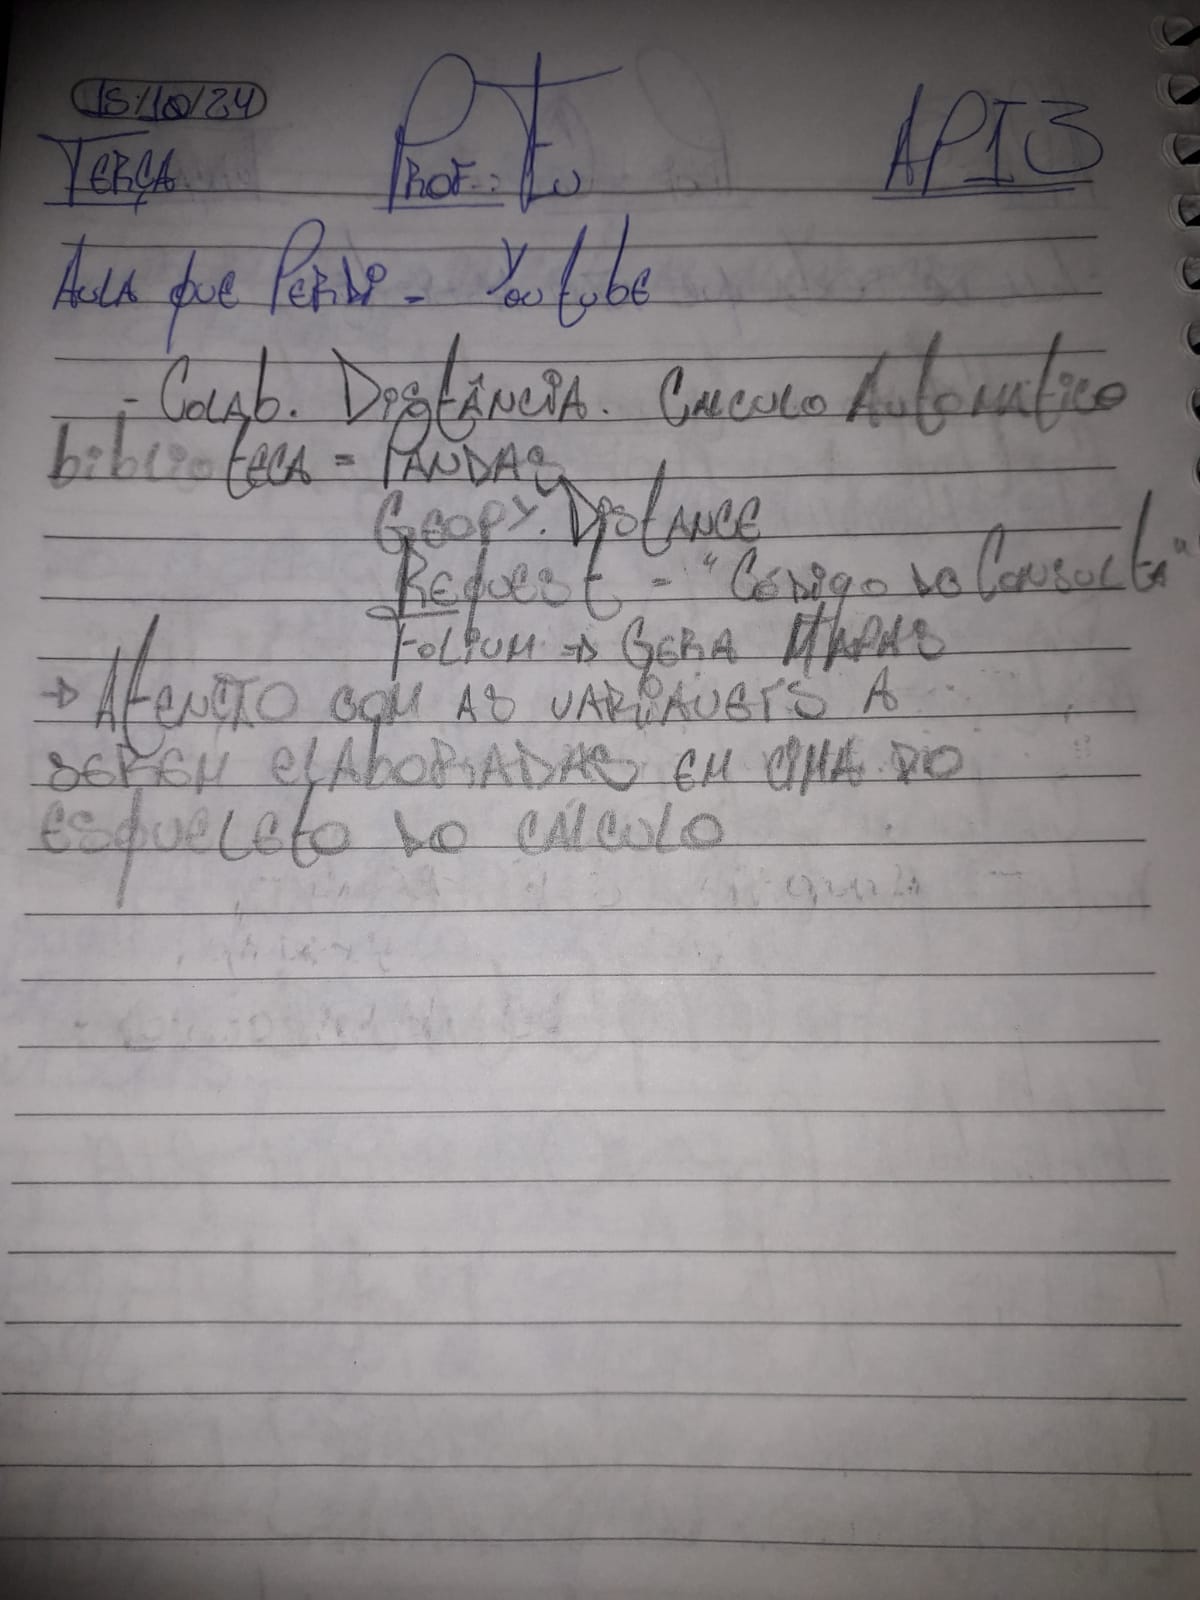 15/10/24
TERÇA PROF.: EU API 3
AULA QUE PERDI - YOUTUBE
- COLAB. DISTÂNCIA. CALCULO AUTOMATICO
BIBLIOTECA = PANDAS
GEOPY. DISTANCE
REQUEST - "CÓDIGO DO CONSULTA"
FOLIUM => GERA MAPAS
=> ATENCÃO COM AS VARIÁVEIS A
SEREM ELABORADAS EM CIMA DO
ESQUELETO DO CÁLCULO